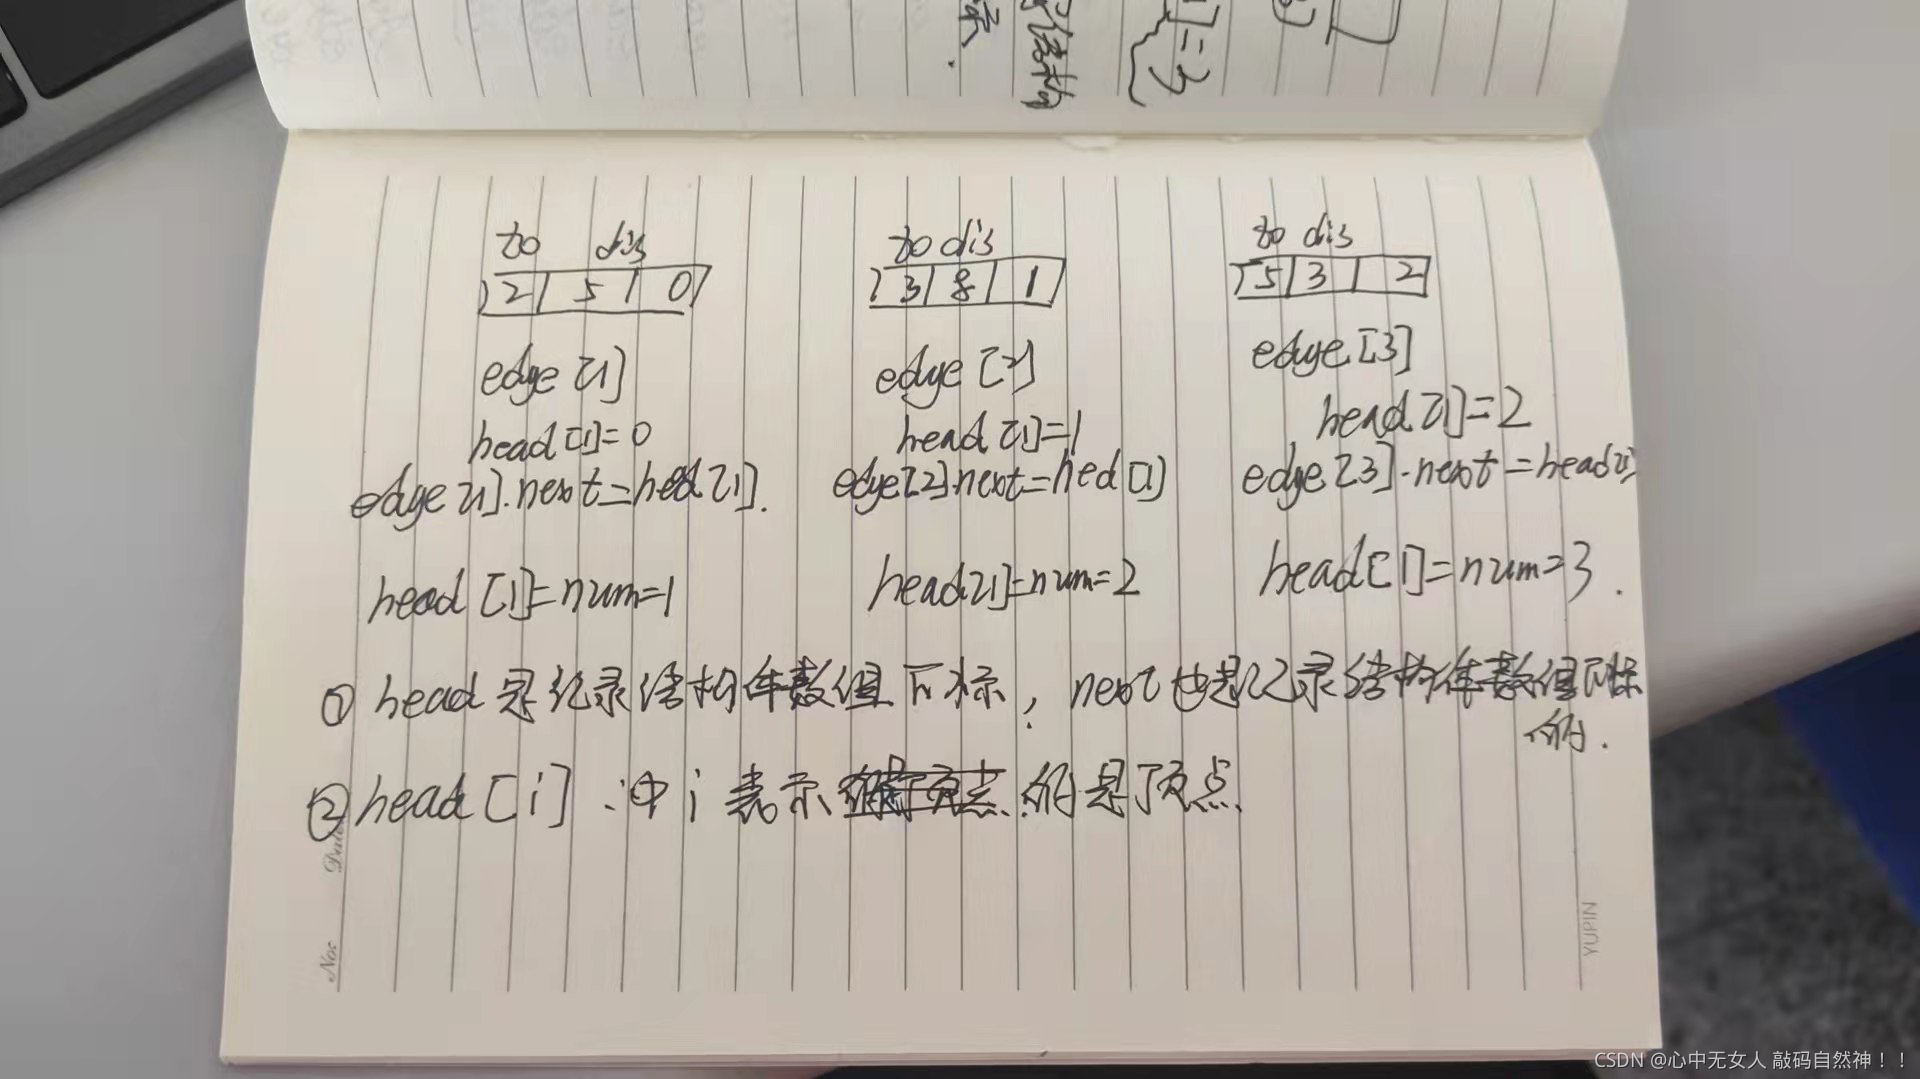 to dis
2 5 0
edge[1]
head[1]=0
edge[1].next=hed[1].
head[1]=num=1
to dis
3 8 1
edge[2]
head[1]=1
edge[2].next=hed[1]
head[1]=num=2
to dis
5 3 2
edge[3]
head[1]=2
edge[3].next=head[1]
head[1]=num=3.
① head是纪录结构体数组下标, next也是记录结构体数组下标
的.
② head[i]中i表示的是顶点
Date
Nos
YUPIN
CSDN @心中无女人 敲码自然神！！